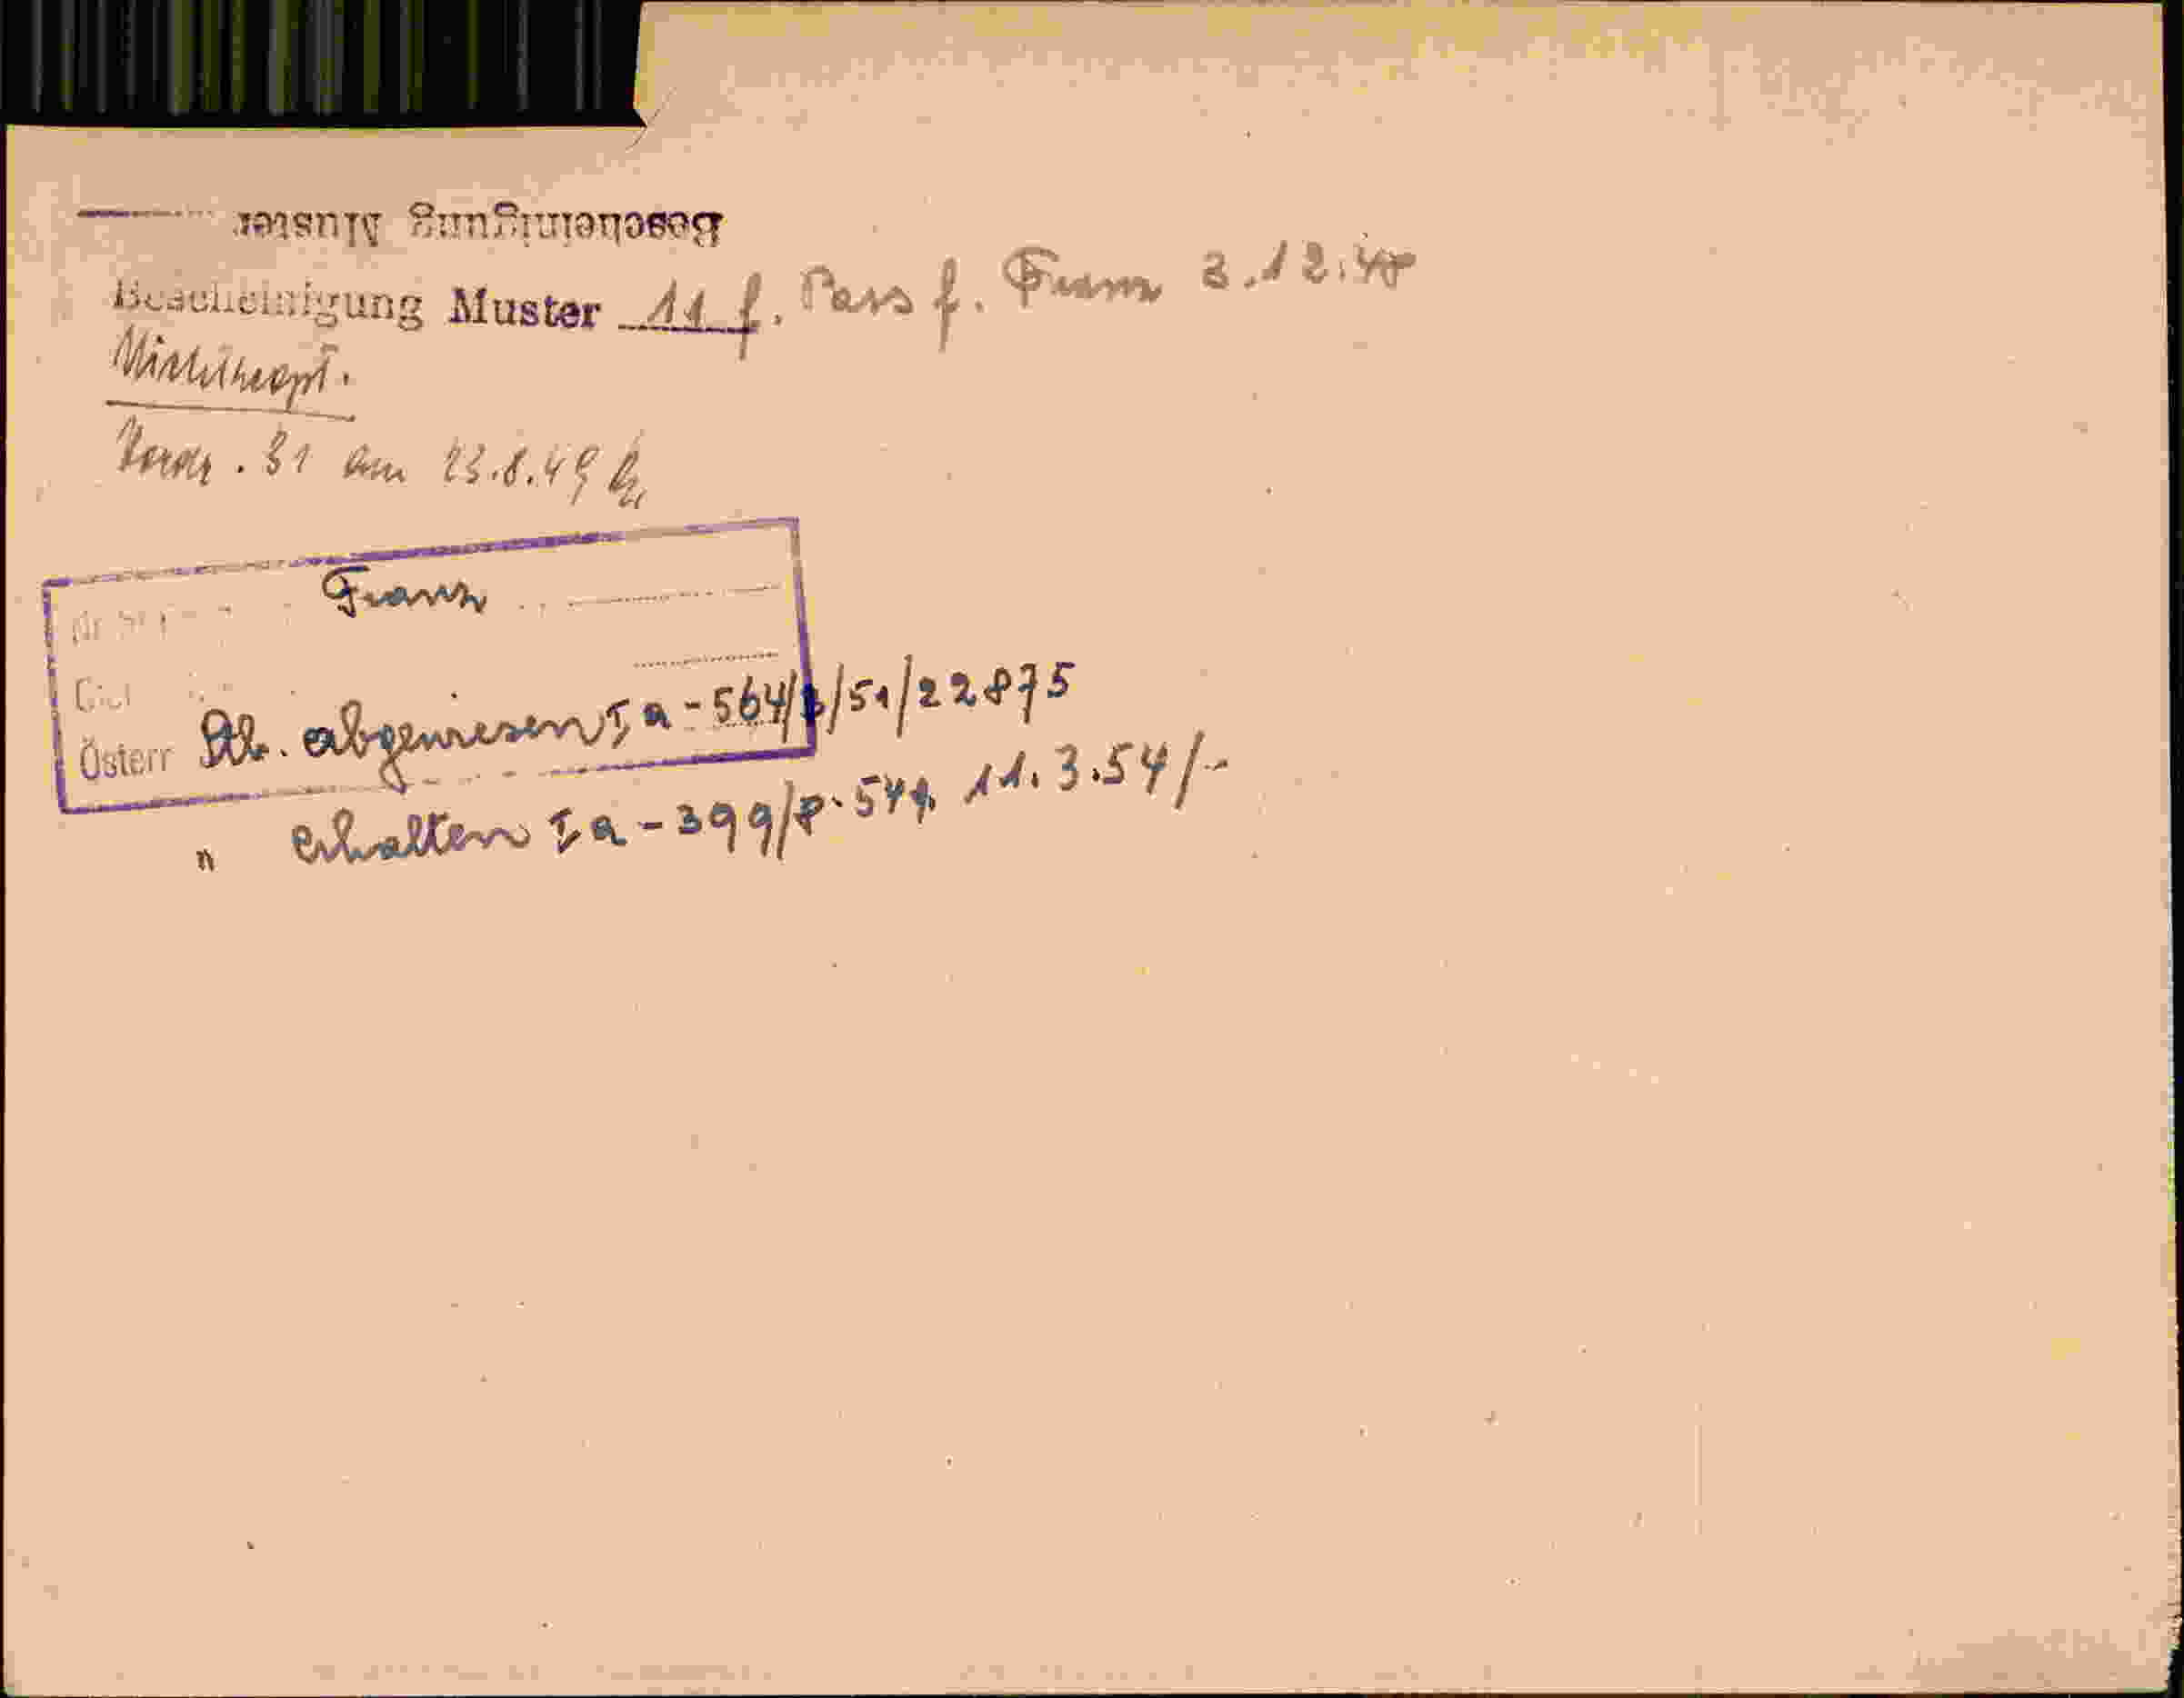 Bescheinigung Muster
Bescheinigung Muster 11 f. Pass f. Franz 3.12.48
31 am 23.8.49
Franz
Österr Stb. abgewiesen I a - 564/3/51/22875
" erhalten I a - 399/8-54 11.3.54/-